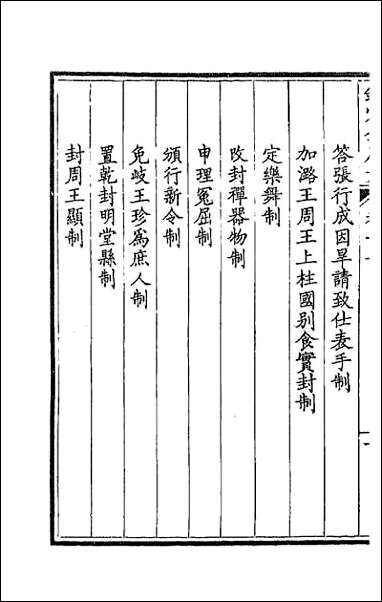 答張行成因旱請致仕表手制
加潞王周王上柱國別食實封制
定樂舞制
改封禪器物制
申理冤屈制
頒行新令制
免岐王珍爲庶人制
置乾封明堂縣制
封周王顯制